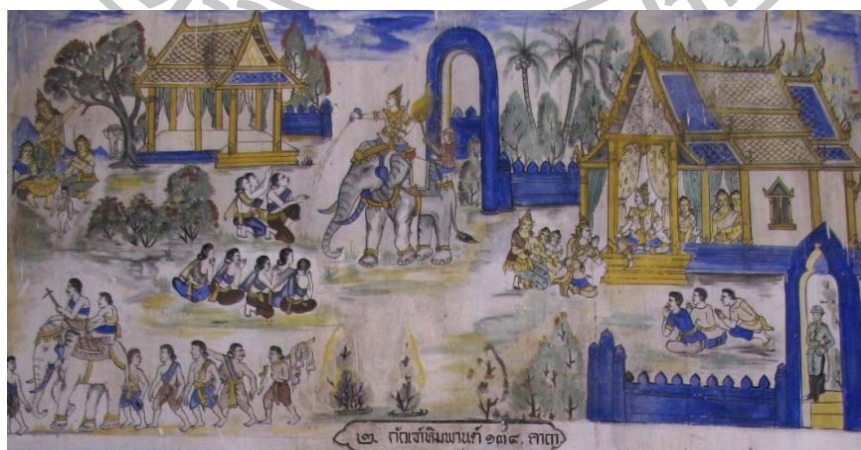 ๒. กัณฑ์หิมพานต์ ๑๓๔. คาถา